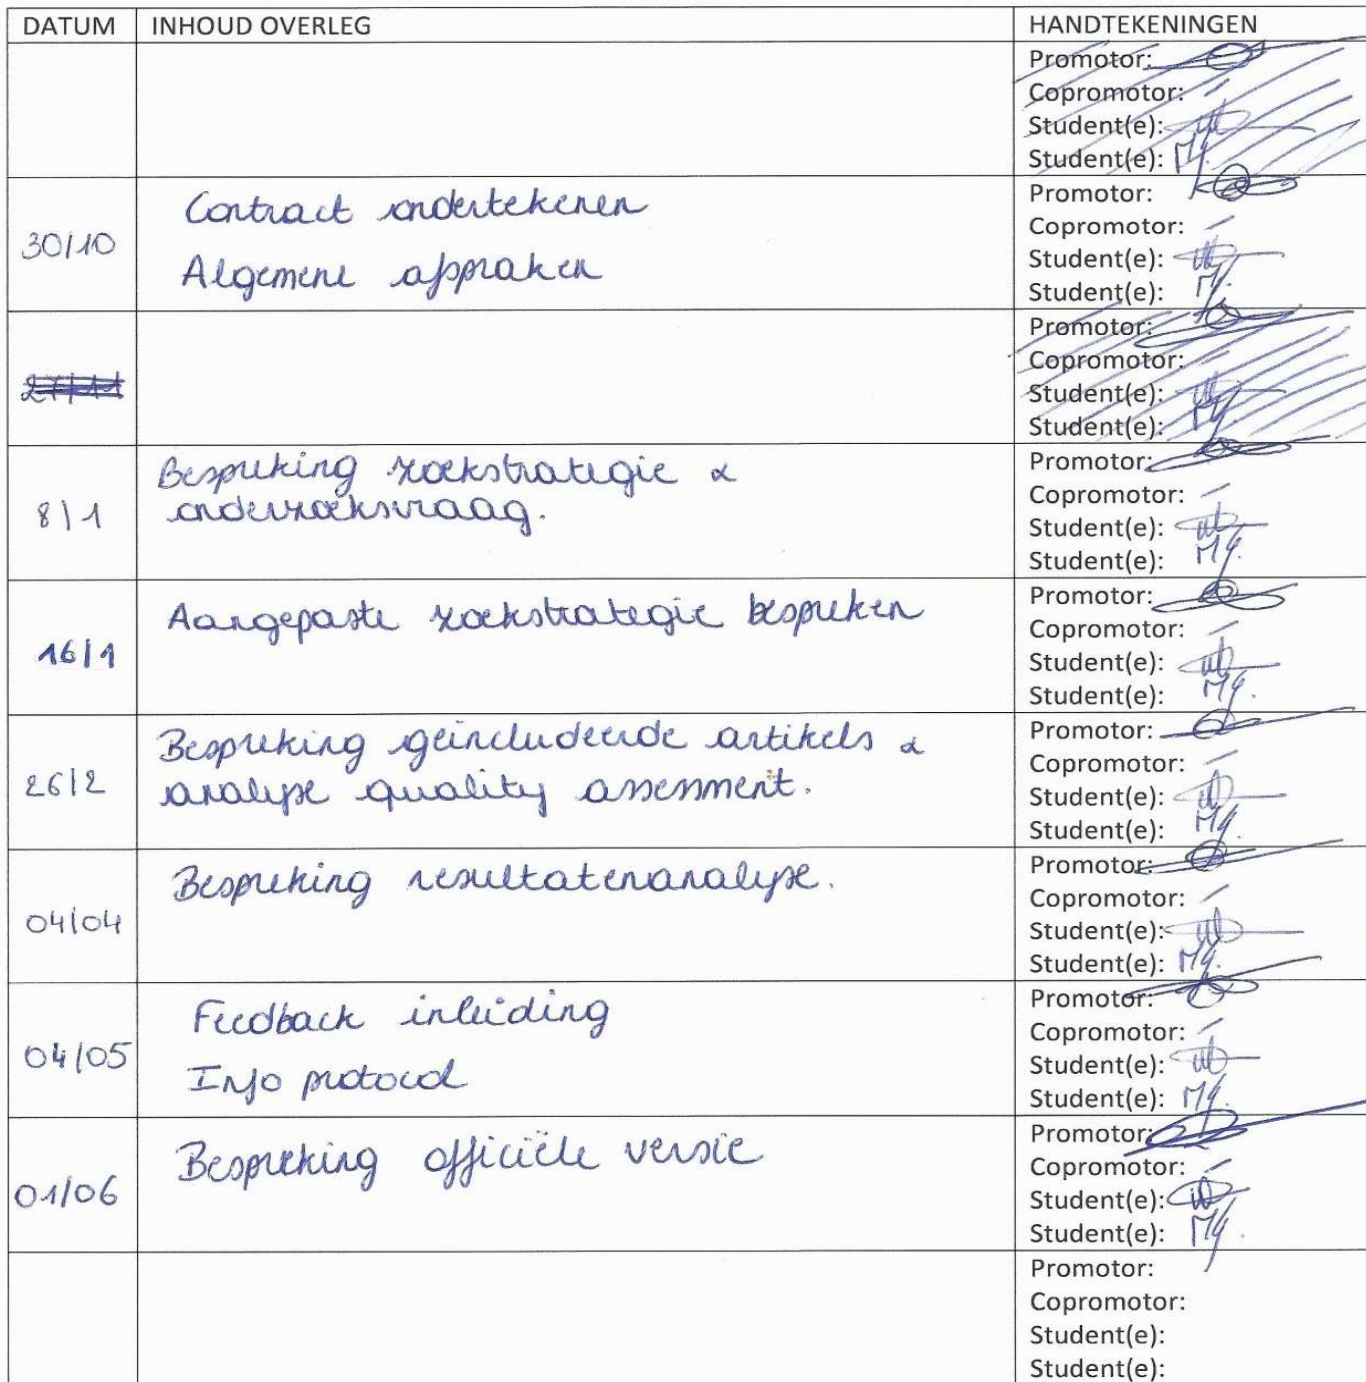 DATUM INHOUD OVERLEG HANDTEKENINGEN
Promotor:
Copromotor:
Student(e):
Student(e):
30/10
Contract ondertekenen
Algemene afspraken
Promotor:
Copromotor:
Student(e):
Student(e):
Promotor:
Copromotor:
Student(e):
Student(e):
8/1
Bespreking zoekstrategie &
onderzoeksvraag.
Promotor:
Copromotor:
Student(e):
Student(e):
16/1
Aangepaste zoekstrategie bespreken
Promotor:
Copromotor:
Student(e):
Student(e):
26/2
Bespreking geïncludeerde artikels &
analyse quality assessment.
Promotor:
Copromotor:
Student(e):
Student(e):
04/04
Bespreking resultatenanalyse.
Promotor:
Copromotor:
Student(e):
Student(e):
04/05
Feedback inleiding
Info protocol
Promotor:
Copromotor:
Student(e):
Student(e):
01/06
Bespreking officiële versie
Promotor:
Copromotor:
Student(e):
Student(e):
Promotor:
Copromotor:
Student(e):
Student(e):